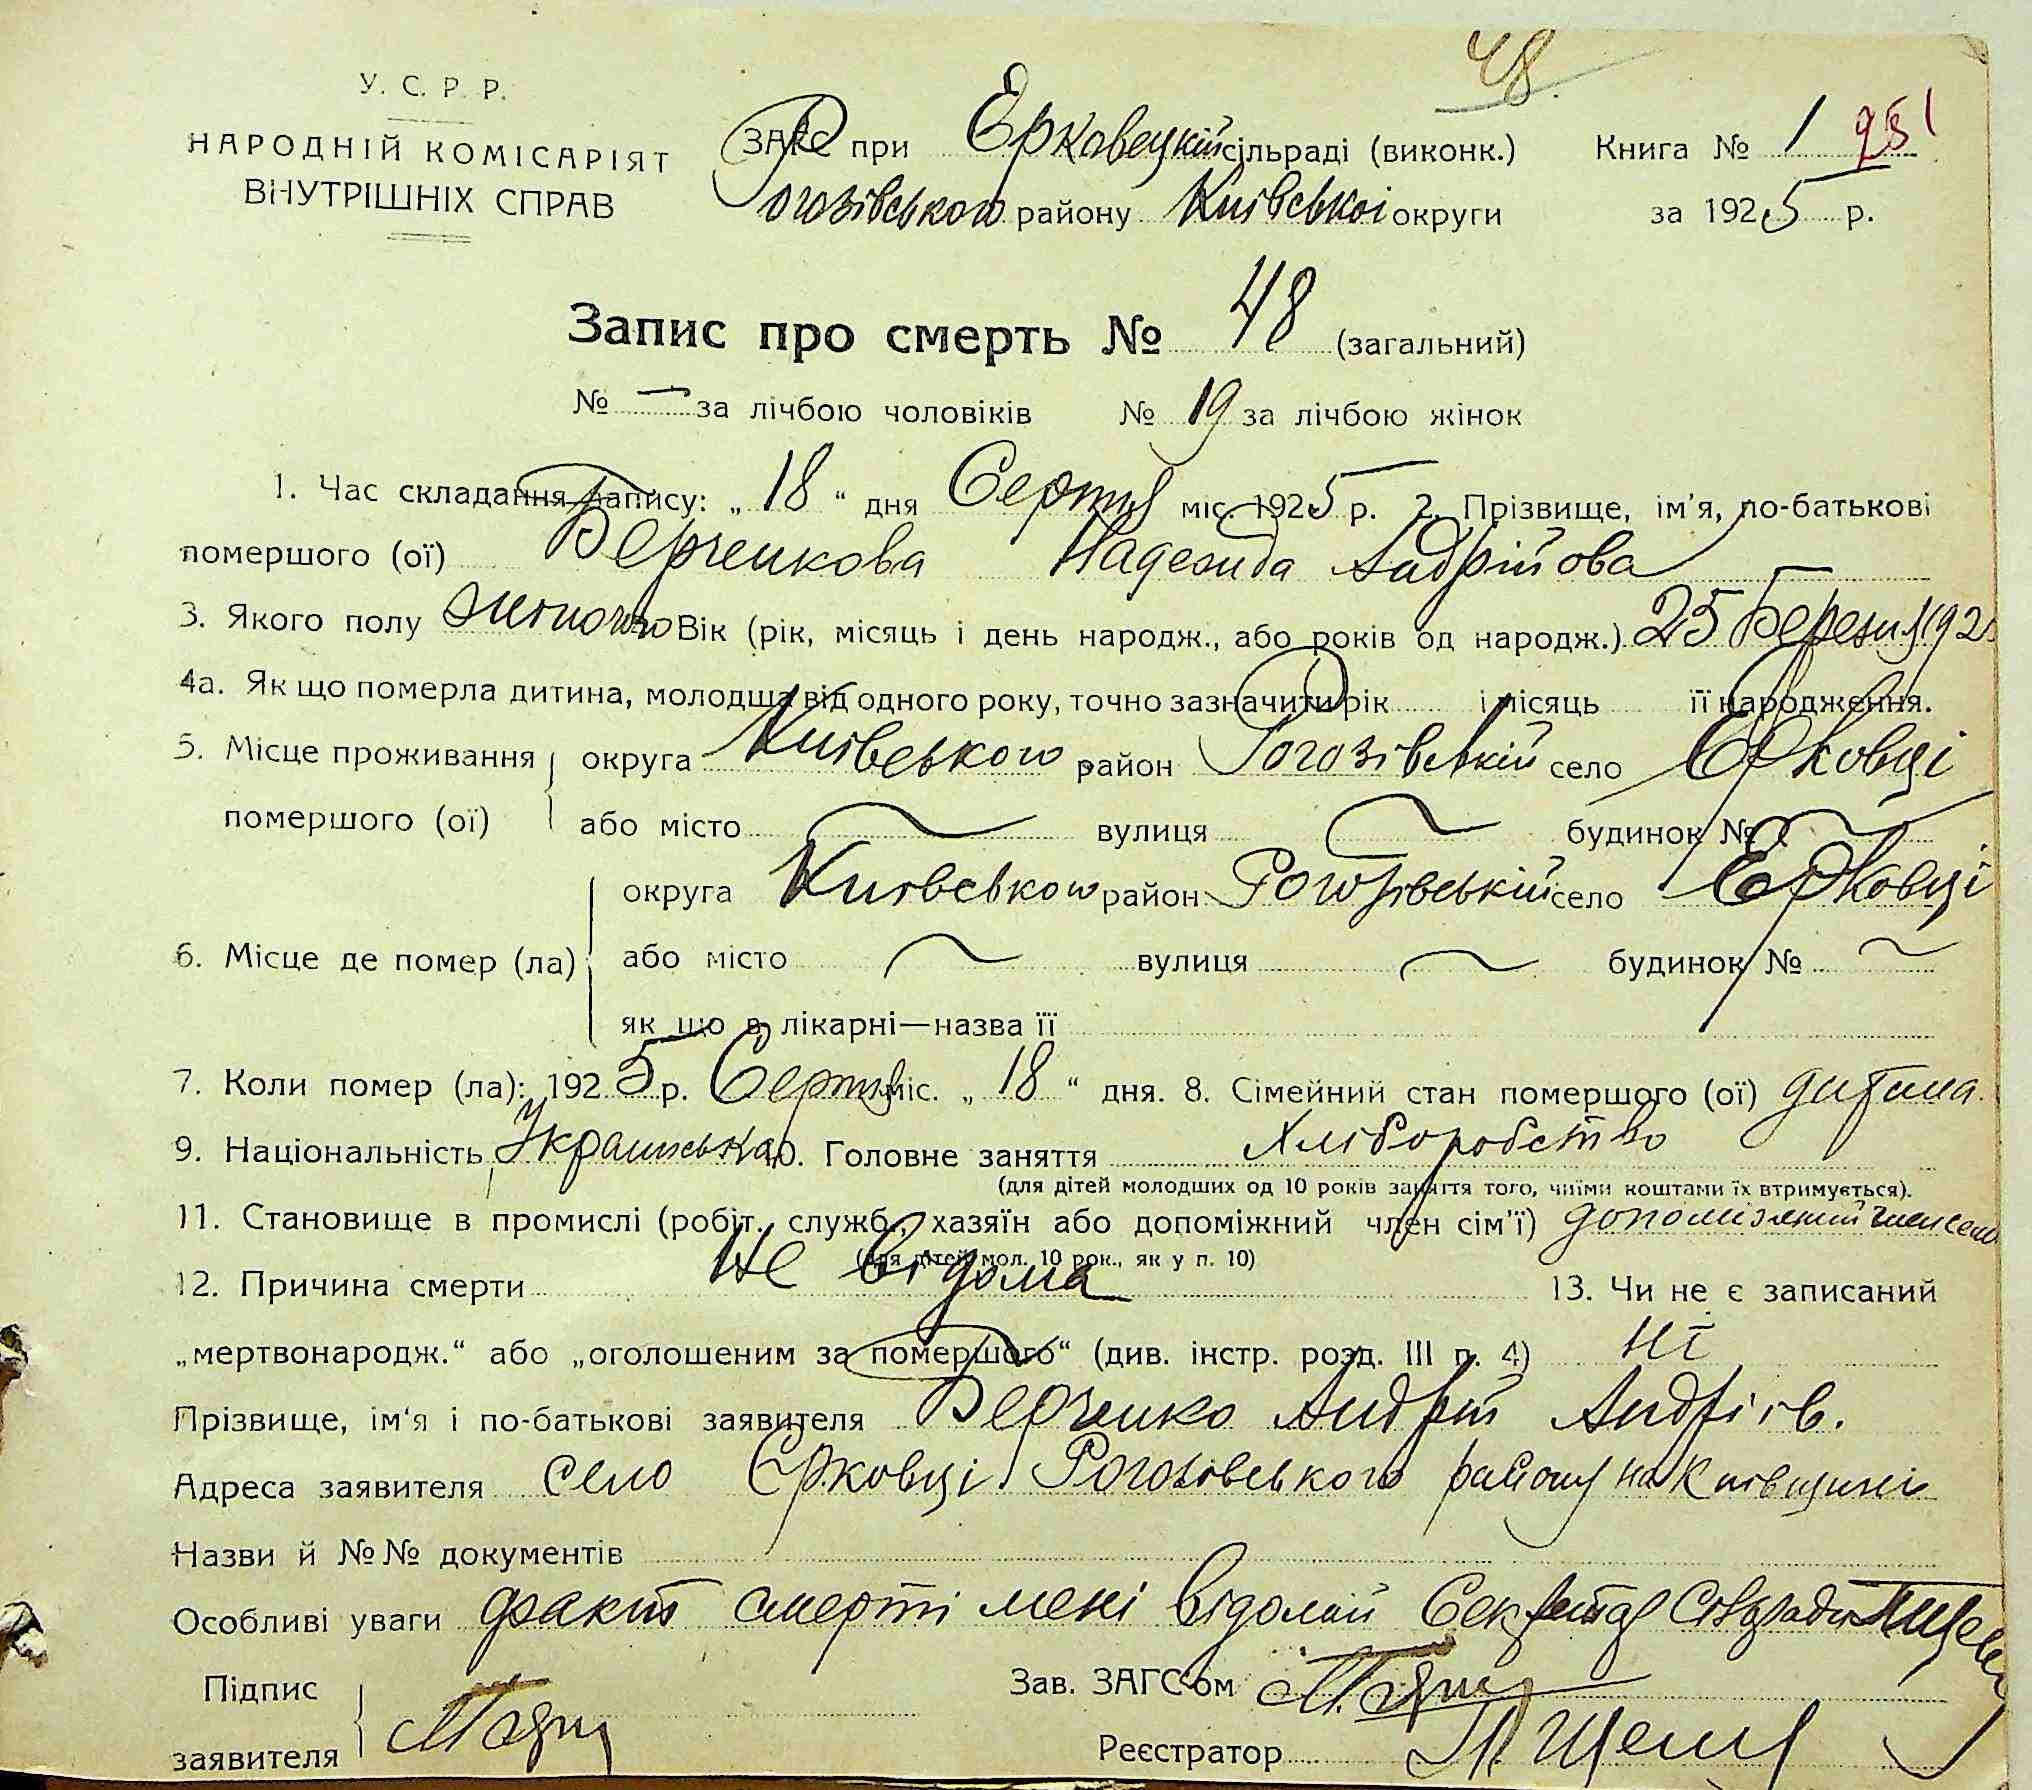 48.
У. С. Р. Р.
НАРОДНІЙ КОМІСАРІЯТ
ВНУТРІШНІХ СПРАВ
ЗАГС при Ерковецкій сільраді (виконк.)
Рогозівського району Київської округи
Книга № 1
за 1925 р.
Запис про смерть № 48 (загальний)
№ — за лічбою чоловіків № 19 за лічбою жінок
1. Час складання запису: „ 18 “ дня Серпня міс. 1925 р. 2. Прізвище, ім'я, по-батькові
помершого (ої) Верченкова Надежда Андрійова
3. Якого полу жіночого Вік (рік, місяць і день народж., або років од народж.) 25 Березня 192
4а. Як що померла дитина, молодща від одного року, точно зазначити рік і місяць її народження.
5. Місце проживання округа Київського район Рогозівській село Ерковці
помершого (ої) або місто ~ вулиця ~ будинок № ~
округа Київського район Рогозівській село Ерковці
6. Місце де помер (ла) або місто ~ вулиця ~ будинок № ~
як що в лікарні—назва її
7. Коли помер (ла): 1925 р. Серпня міс. „ 18 “ дня. 8. Сімейний стан помершого (ої) дитина.
9. Національність Українська 10. Головне заняття Хліборобство
(для дітей молодших од 10 років заняття того, чиїми коштами їх втримується).
11. Становище в промислі (робіт. служб., хазяїн або допоміжний член сім'ї) допоміжний член сем
(для дітей мол. 10 рок., як у п. 10)
12. Причина смерти Не відома 13. Чи не є записаний
„мертвонародж.“ або „оголошеним за помершого“ (див. інстр. розд. III п. 4) ні
Прізвище, ім'я і по-батькові заявителя Верченко Андрій Андріїв.
Адреса заявителя село Єрковці Рогозівського району на Київщині
Назви й №№ документів
Особливі уваги факт смерті мені відомий Секретар Сільради
Підпис
заявителя
Зав. ЗАГС'ом
Реєстратор